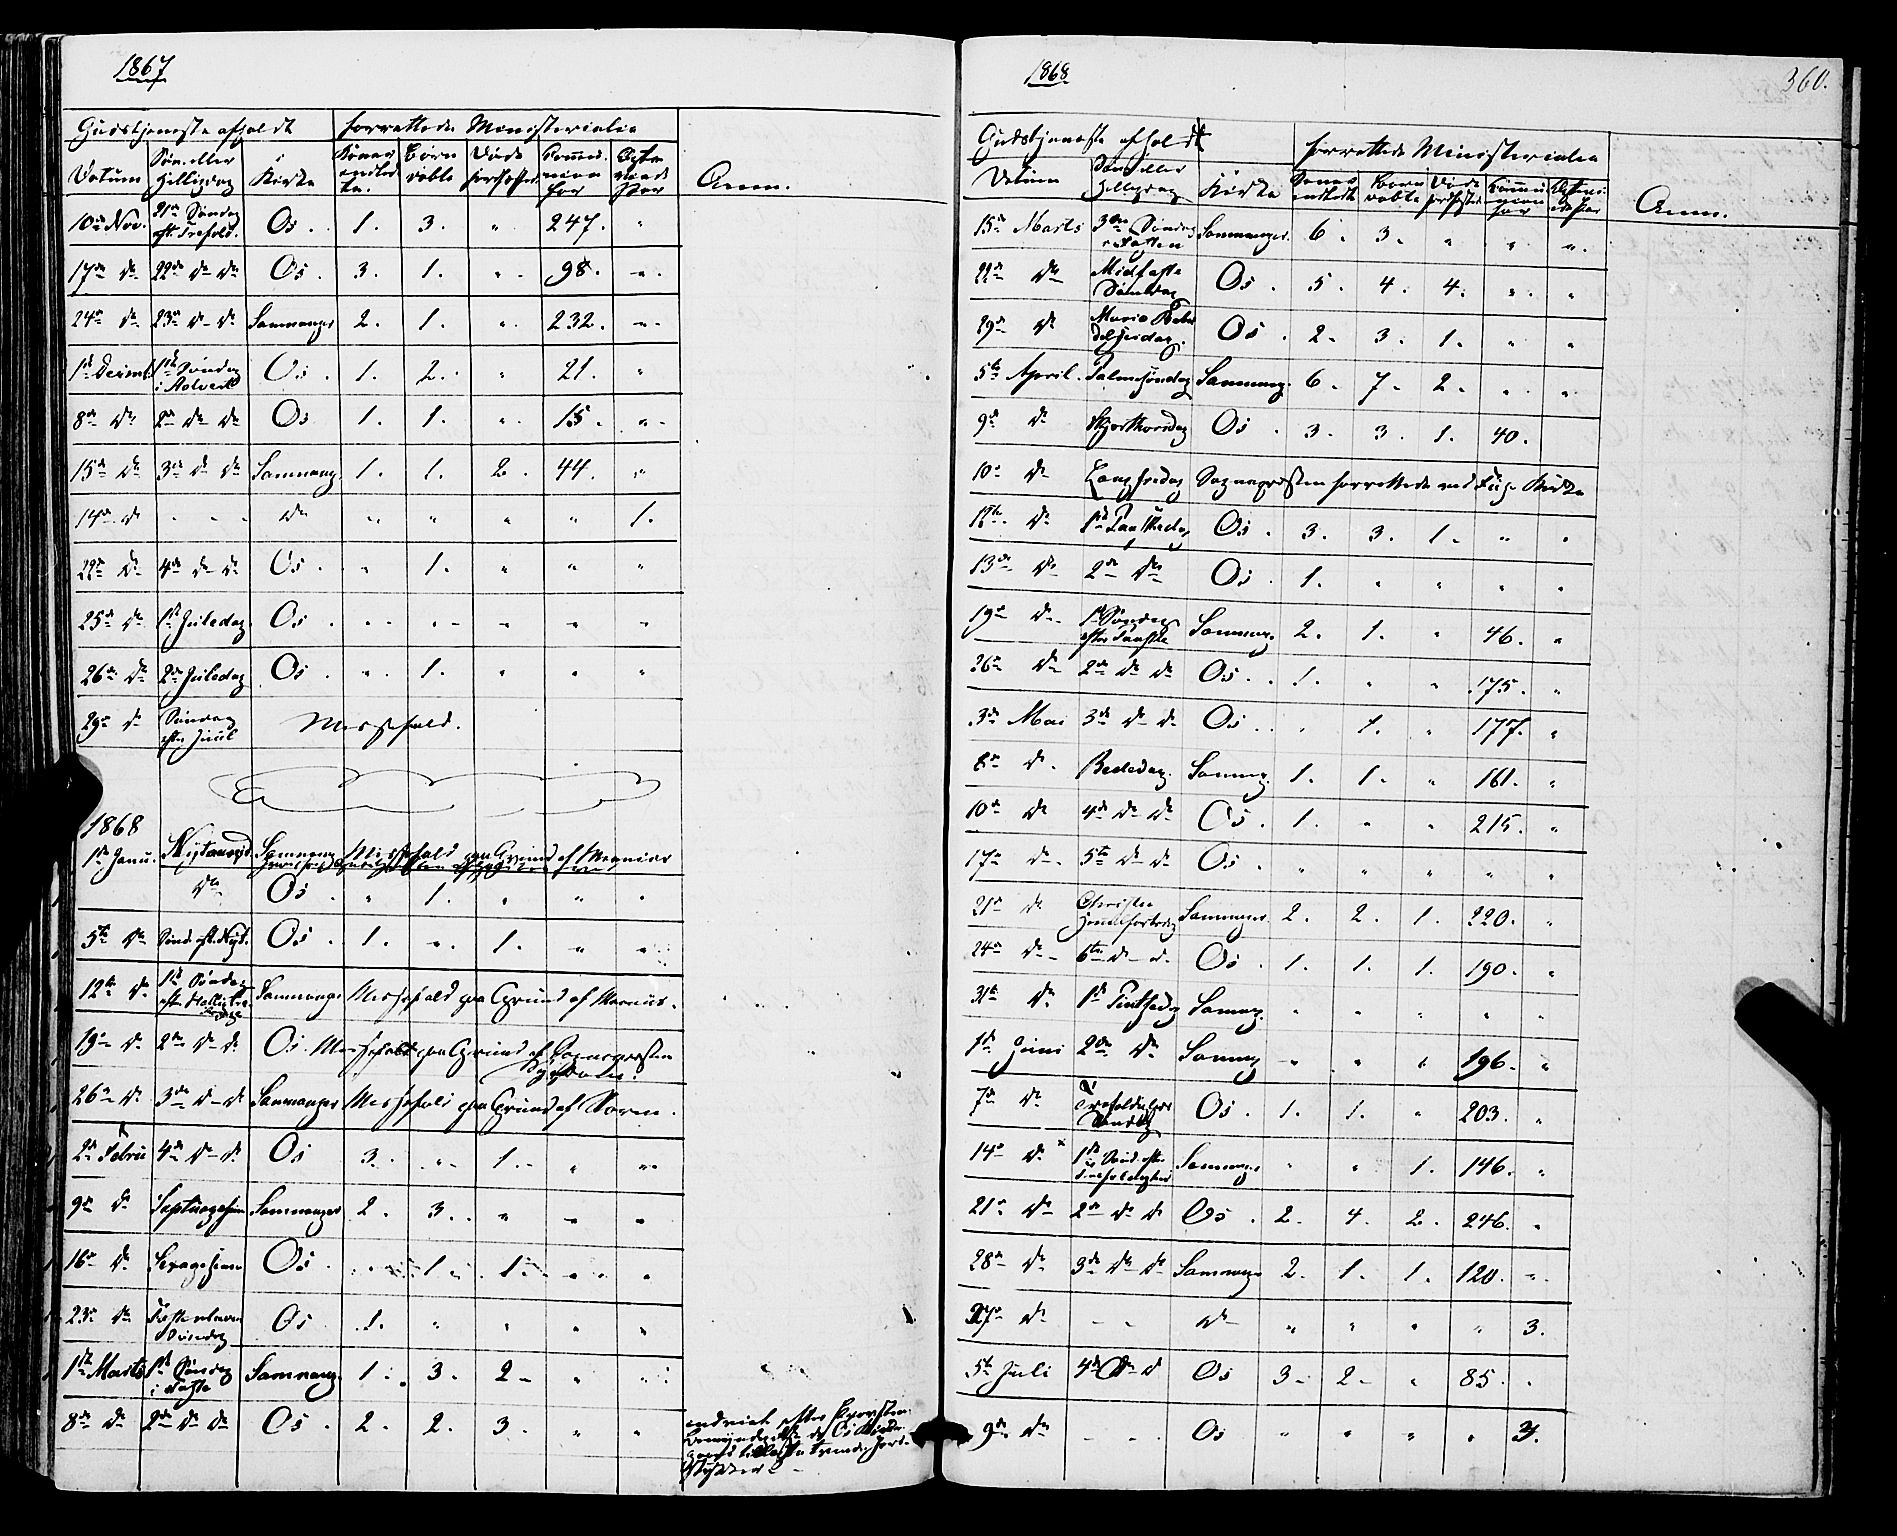 1867
Gudstjeneste afholdt forrettede Ministerialia
Datum Søn- eller Helligdag Kirke Børn døbte Døde Anm.
10de Nov. 21de Søndag eft. Trefold. Os. 1. 3. " 247. "
17de do 22de do do Os. 3. 1. " 98. "
24de do 23de do do Samnanger 2. 1. " 232. "
1ste Decemb 1ste Søndag i Advent Os. 1. 2. " 21. "
8de do 2den do do Os 1. 1. " 15. "
15de do 3die do do Samnang. 1. 1. 2. 44. "
14de do " " do " " " " 1.
22de do 4de do do Os. " 1. " " "
25de do 1ste Juledag Os. " " " " "
26de do 2den Juledag Os. " 1. " " "
29de do Søndag efter Juul Messefald.
1868
1ste Janu. Nytaarsd. Samnang. Messefald paa Grund af
do Os. " 1. " " "
5te do Sønd. eft. Nyt. Os. 1. " 1. " "
12te do 1ste Søndag eft. Hellig tre Konger Samnanger Messefald paa Grund af
19de do 2den do do Os. Messefald paa Grund af Sognepræsten
Sygdom.
26de do 3die do do Samnanger Messefald paa Grund af Storm.
2den Febru 4de do do Os 3. " 1. " "
9de do Septuagesima Samnanger 2. 3. " " "
16de do Sexagesima Os. " 1. 1. " "
23de do Fastelavns Søndag Os. 1. " " " "
1ste Marts 1ste Søndag i Faste Samnang. 1. 3. 2. " "
8de do 2den do do Os. 2. 2. 3. " "
1868
360.
Gudstjeneste afholdt forrettede Ministerialia
Datum Søn eller Helligdag Kirke Børn døbte Døde Anm.
15de Marts 3die Søndag i Fasten Samnanger. 6. 3. " " "
22de do Midfaste Søndag Os. 5. 4. 4. " "
29de do Maria Bebudelsesdag. Os. 2. 3. 1. " "
5te April. Palmesøndag Samnang. 6. 7. 2. " "
9de do Skjærthorsdag Os. 3. 3. 1. 40.
10de do Langfredag Sognepræsten forrettede ved Fuse Kirke
12te do 1ste Paaskedag Os. 3. 3. 1. " "
13de do 2den do Os. 1. " " " "
19de do 1ste Søndag efter Paaske Samnang. 2. 1. " 46. "
26de do 2den do do Os. 1. " " 175. "
3die Mai 3die do do Os. " 1. " 177. "
8de do Bededag. Samnang. 1. 1. " 161. "
10de do 4de do do Os. 1. " " 215. "
17de do 5te do do Os. " " " " "
21de do Christi Himmelfartsdag Samnanger. 2. 2. 1. 220. "
24de do 6te do do Os. 1. 1. 1. 190. "
31te do 1ste Pintsedag Samnang. " " " " "
1ste Juni 2den do Samnang " " " 196. "
7de do Trefoldigheds Søndag Os. 1. 1. " 203. "
14de do 1ste Sønd. efter Trefoldighed Samnang. " " 1. 146. "
21de do 2den do do Os. 2. 4. 2. 246. "
28de do 3die do do Samnang. 2. 1. 1. 120. "
27de do " " do " " " " 3.
5te Juli 4de do do Os 3. 2. " 85. "
9de do " " Os " " " " 3.